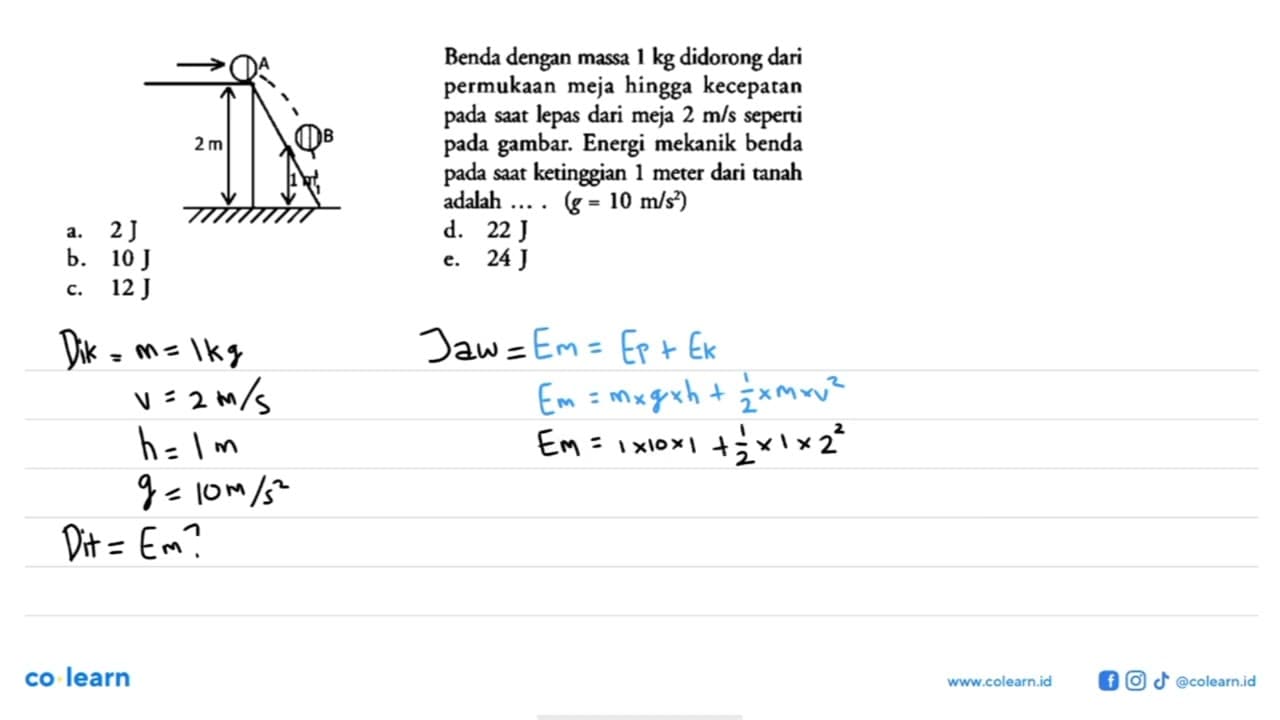 A
B
2 m
1 m
Benda dengan massa 1 kg didorong dari
permukaan meja hingga kecepatan
pada saat lepas dari meja 2 m/s seperti
pada gambar. Energi mekanik benda
pada saat ketinggian 1 meter dari tanah
adalah ... . (g = 10 m/s²)
a. 2 J
b. 10 J
c. 12 J
d. 22 J
e. 24 J
Dik = m = 1 kg
v = 2 m/s
h = 1 m
g = 10 m/s²
Dit = Em?
Jaw = Em = Ep + Ek
Em = m x g x h + 1/2 x m x v²
Em = 1 x 10 x 1 + 1/2 x 1 x 2²
co learn
www.colearn.id
@colearn.id